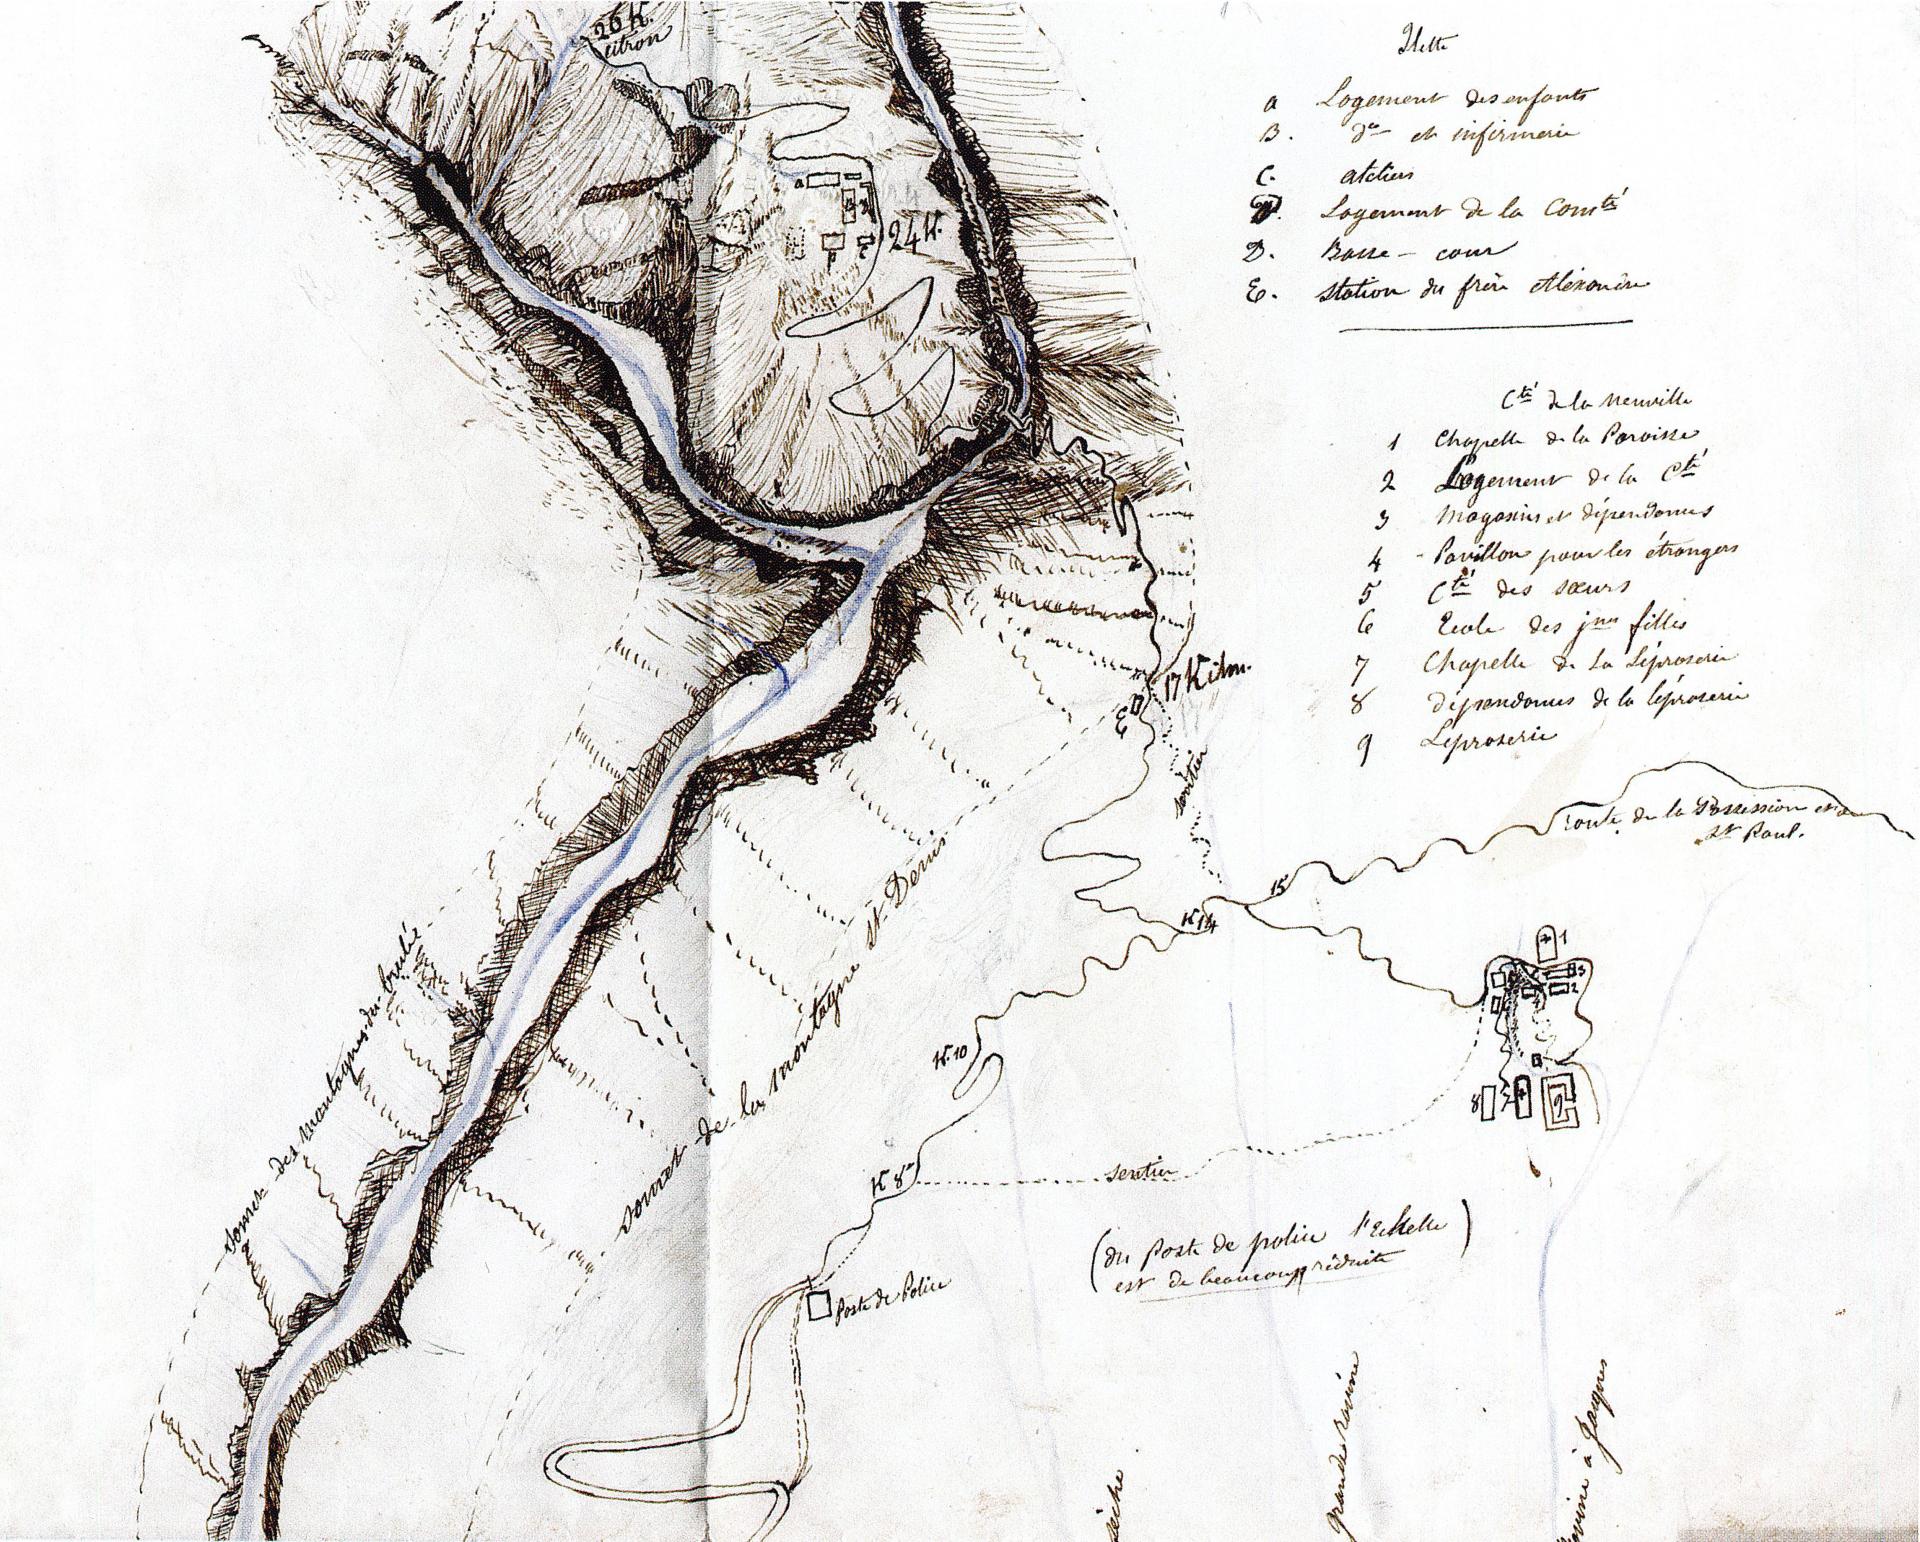 Ilette
a Logement des enfants
B. d° et infirmerie
C. ateliers
D. Logement de la Com.té
D. Basse-cour
E. station du frère Aléxandre
C.té de la neuville
1 Chapelle de la Paroisse
2 Logement de la C.té
3 Magasins et dépendances
4 - Pavillon pour les étrangers
5 C.té des sœurs
6 Ecole des j.nes filles
7 Chapelle de la Léproserie
8 dépendances de la léproserie
9 Léproserie
26 K.
citron
a
24 K.
17 Kilom.
E
sentier
route de la Possession et
St Paul.
15
K 14
1
3
2
K. 10
8
7
9
K 8
sentier
somet de la montagne St. Denis
somet des montagnes du brulé
(du Poste de police l'Echelle
est de beaucoup réduite)
Poste de Police
grande ravine
ravine à Jacques